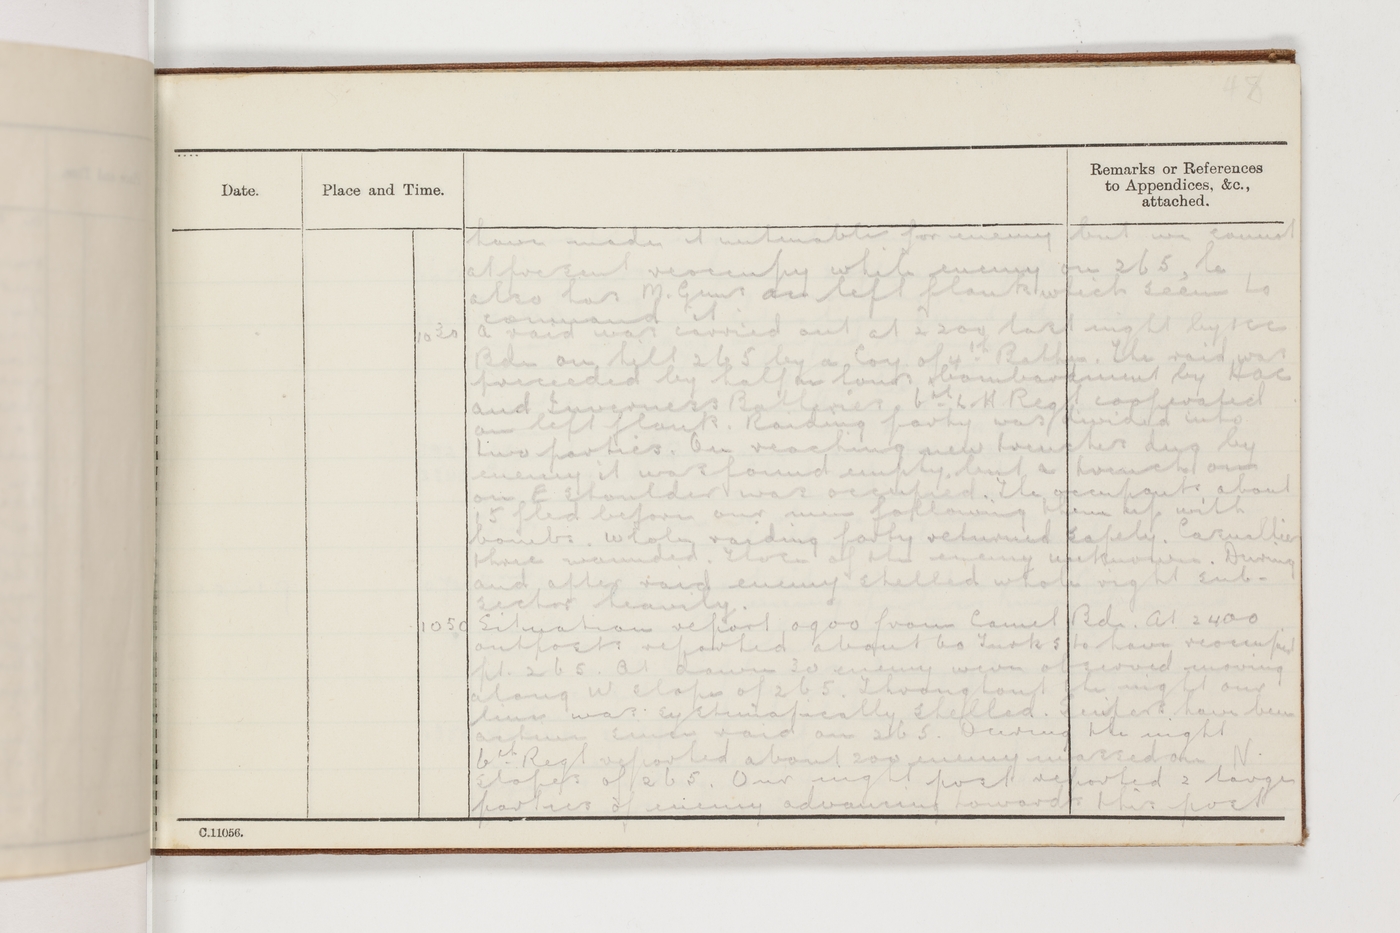 48
Date.
Place and Time.
Remarks or References
to Appendices, &c.,
attached.
have made it untenable for enemy but we cannot
at present reoccupy while enemy on 265, he
also has M. Guns on left flank which seem to
command it.
10 30 A raid was carried out at 2200 last night by ICC
Bde on hill 265 by a Coy of 4th Battn. The raid was
preceeded by half an hours bombardment by HAC
and Inverness Batteries. 6th L H Regt cooperated
on left flank. Raiding party was divided into
two parties. On reaching new trenches dug by
enemy it was found empty but a trench on
on E shoulder was occupied. The occupants about
15 fled before our men following them up with
bombs. Whole raiding party returned safely. Casualties
three wounded. Those of the enemy unknown. During
and after raid enemy shelled whole right sub-
sector heavily.
10 50 Situation report 0900 from Camel Bde. At 2400
outposts reported about 60 Turks to have reoccupied
pt. 265. At dawn 30 enemy were observed moving
along W slope of 265. Throughout the night our
line was systematically shelled. have been
active since raid on 265. During the night
6th Regt reported about 200 enemy massed on N.
slopes of 265. Our night post reported 2 larger
parties of enemy advancing towards this post
C.11056.